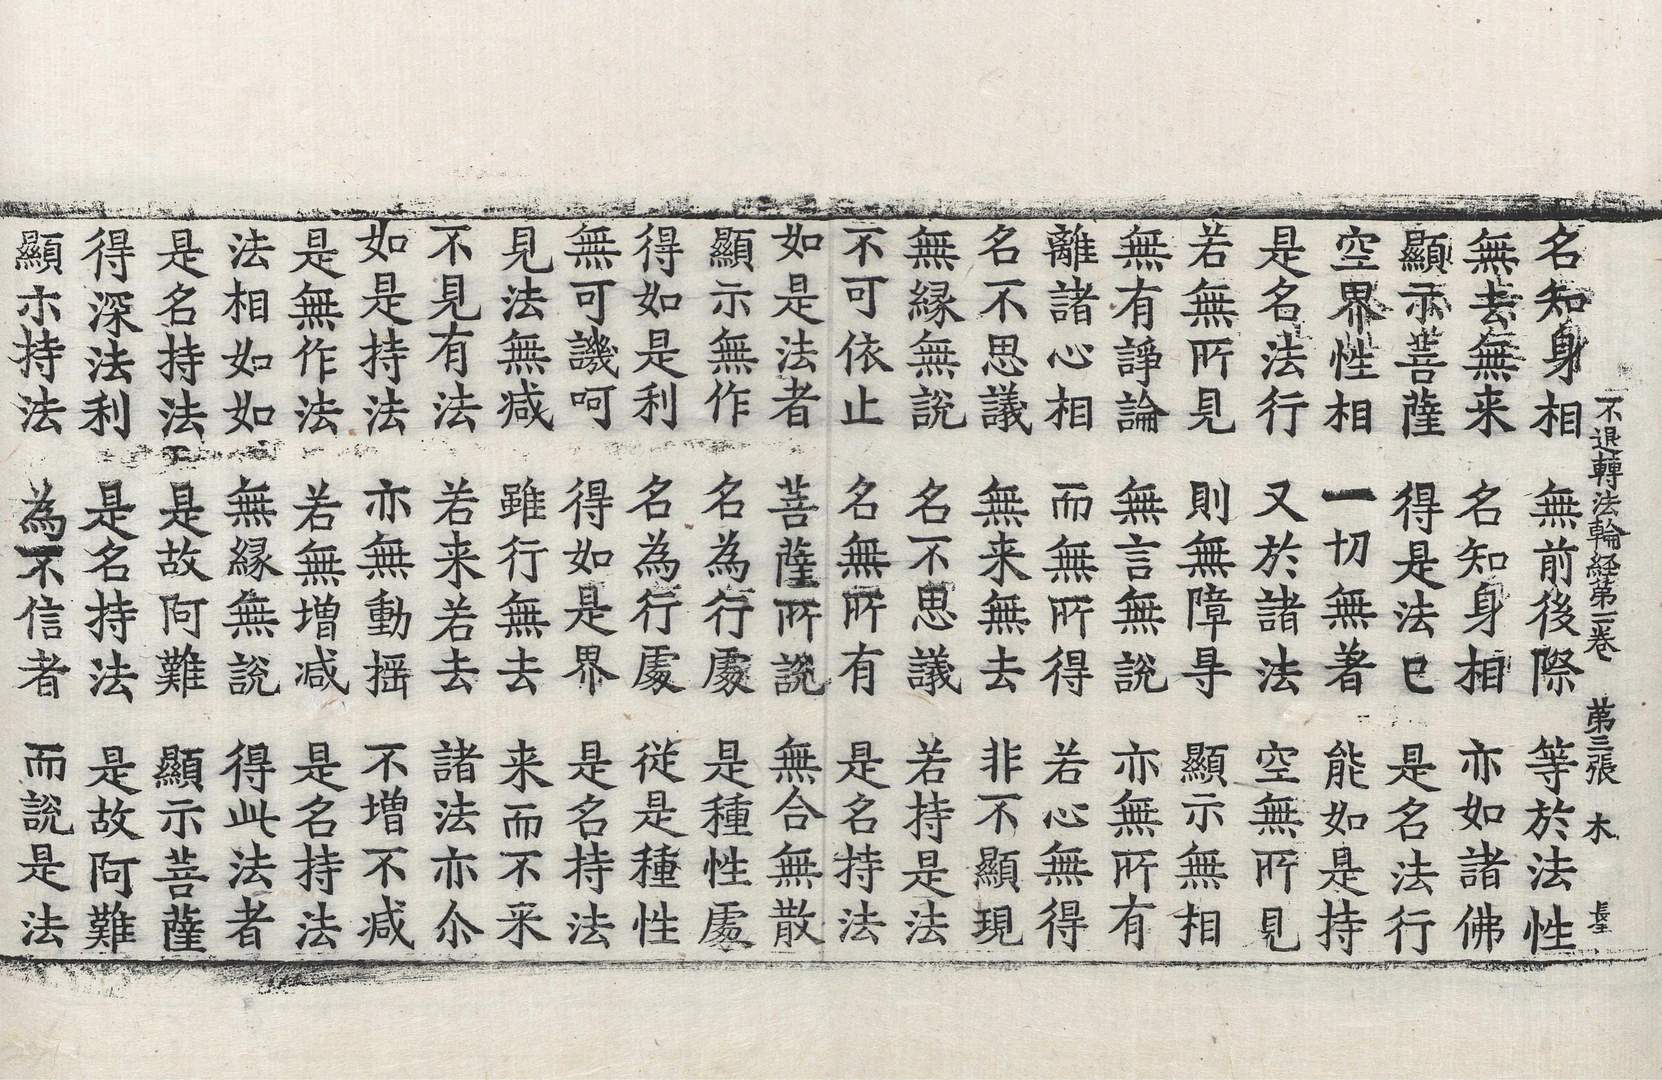 不退轉法輪経第二卷 第三張 木 長
名知身相 無前後際 等於法性
無去無来 名知身相 亦如諸佛
顯示菩薩 得是法已 是名法行
空界性相 一切無著 能如是持
是名法行 又於諸法 空無所見
若無所見 則無障㝵 顯示無相
無有諍論 無言無說 亦無所有
離諸心相 而無所得 若心無得
名不思議 無来無去 非不顯現
無縁無說 名不思議 若持是法
不可依止 名無所有 是名持法
如是法者 菩薩所說 無合無散
顯示無作 名為行處 是種性處
得如是利 名為行處 從是種性
無可譏呵 得如是界 是名持法
見法無減 雖行無去 来而不来
不見有法 若来若去 諸法亦尒
如是持法 亦無動揺 不増不減
是無作法 若無増減 是名持法
法相如如 無縁無說 得此法者
是名持法 是故阿難 顯示菩薩
得深法利 是名持法 是故阿難
顯示持法 為不信者 而說是法